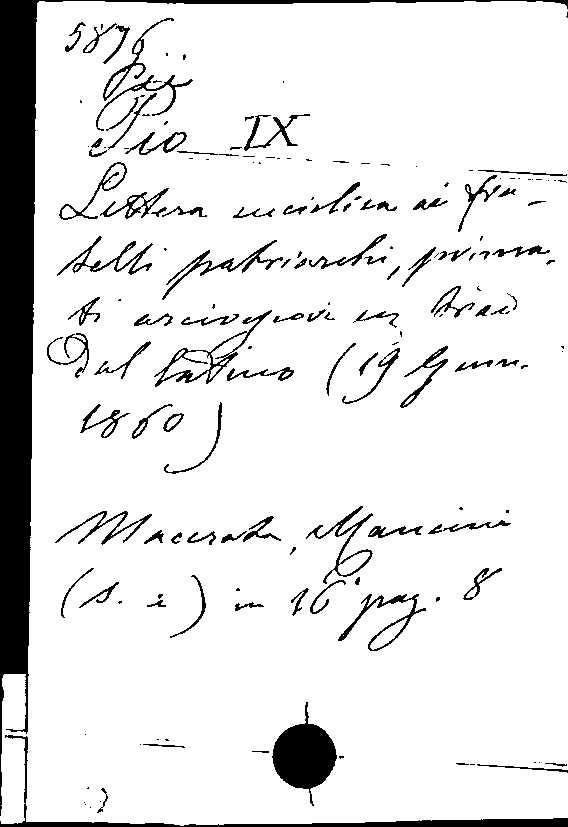 5876
Pio IX
Lettera enciclica ai fra-
telli patriarchi, prima-
ti arcivescovi ec, trad
Dal latino (19 Genn.
1860)
Macerata, Mancini
(s. a) in 16° pag. 8